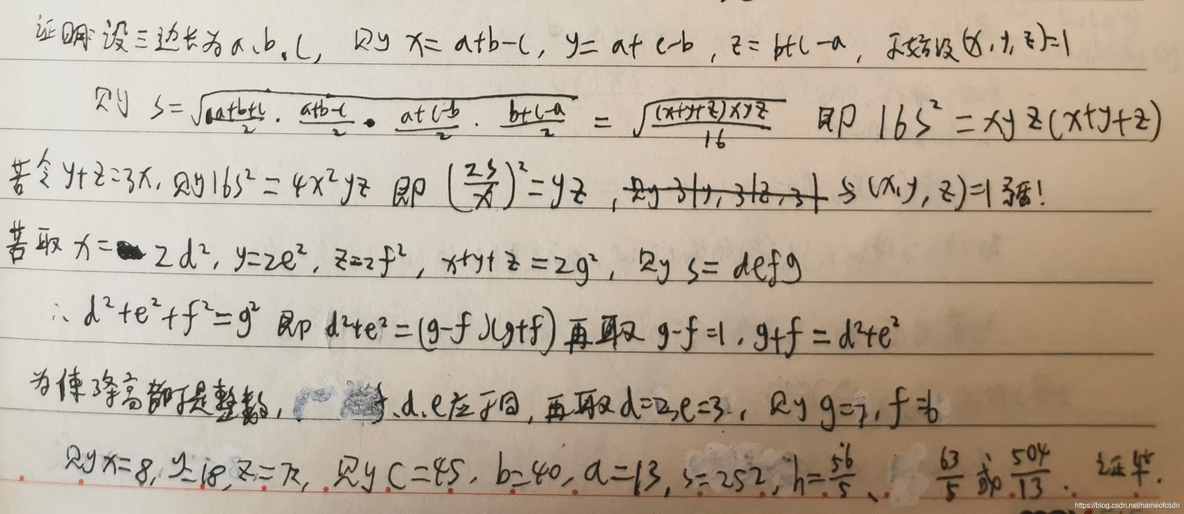 证明:设三边长为a、b、c, 则 x=a+b-c, y=a+c-b, z=b+c-a, 不妨设(x,y,z)=1
则 s=√(a+b+c)/2 · (a+b-c)/2 · (a+c-b)/2 · (b+c-a)/2 = √(x+y+z)xyz/16 即 16s²=xyz(x+y+z)
若令y+z=3x,则16s²=4x²yz 即 (2s/x)²=yz, 与(x,y,z)=1矛盾!
若取 x=2d², y=2e², z=2f², x+y+z=2g², 则 s=defg
∴d²+e²+f²=g² 即 d²+e²=(g-f)(g+f) 再取 g-f=1, g+f=d²+e²
为使 高都 是整数, d、e应 , 再取d=2,e=3, 则 g=7, f=6
则x=8, y=18, z=72, 则 c=45, b=40, a=13, s=252, h=56/5、 63/5 或 504/13. 证毕.
https://blog.csdn.net/nameofcsdn